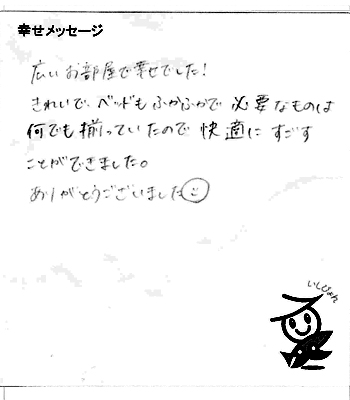 幸せメッセージ
広いお部屋で幸せでした!
きれいで、ベッドもふかふかで必要なものは
何でも揃っていたので快適にすごす
ことができました。
ありがとうございました